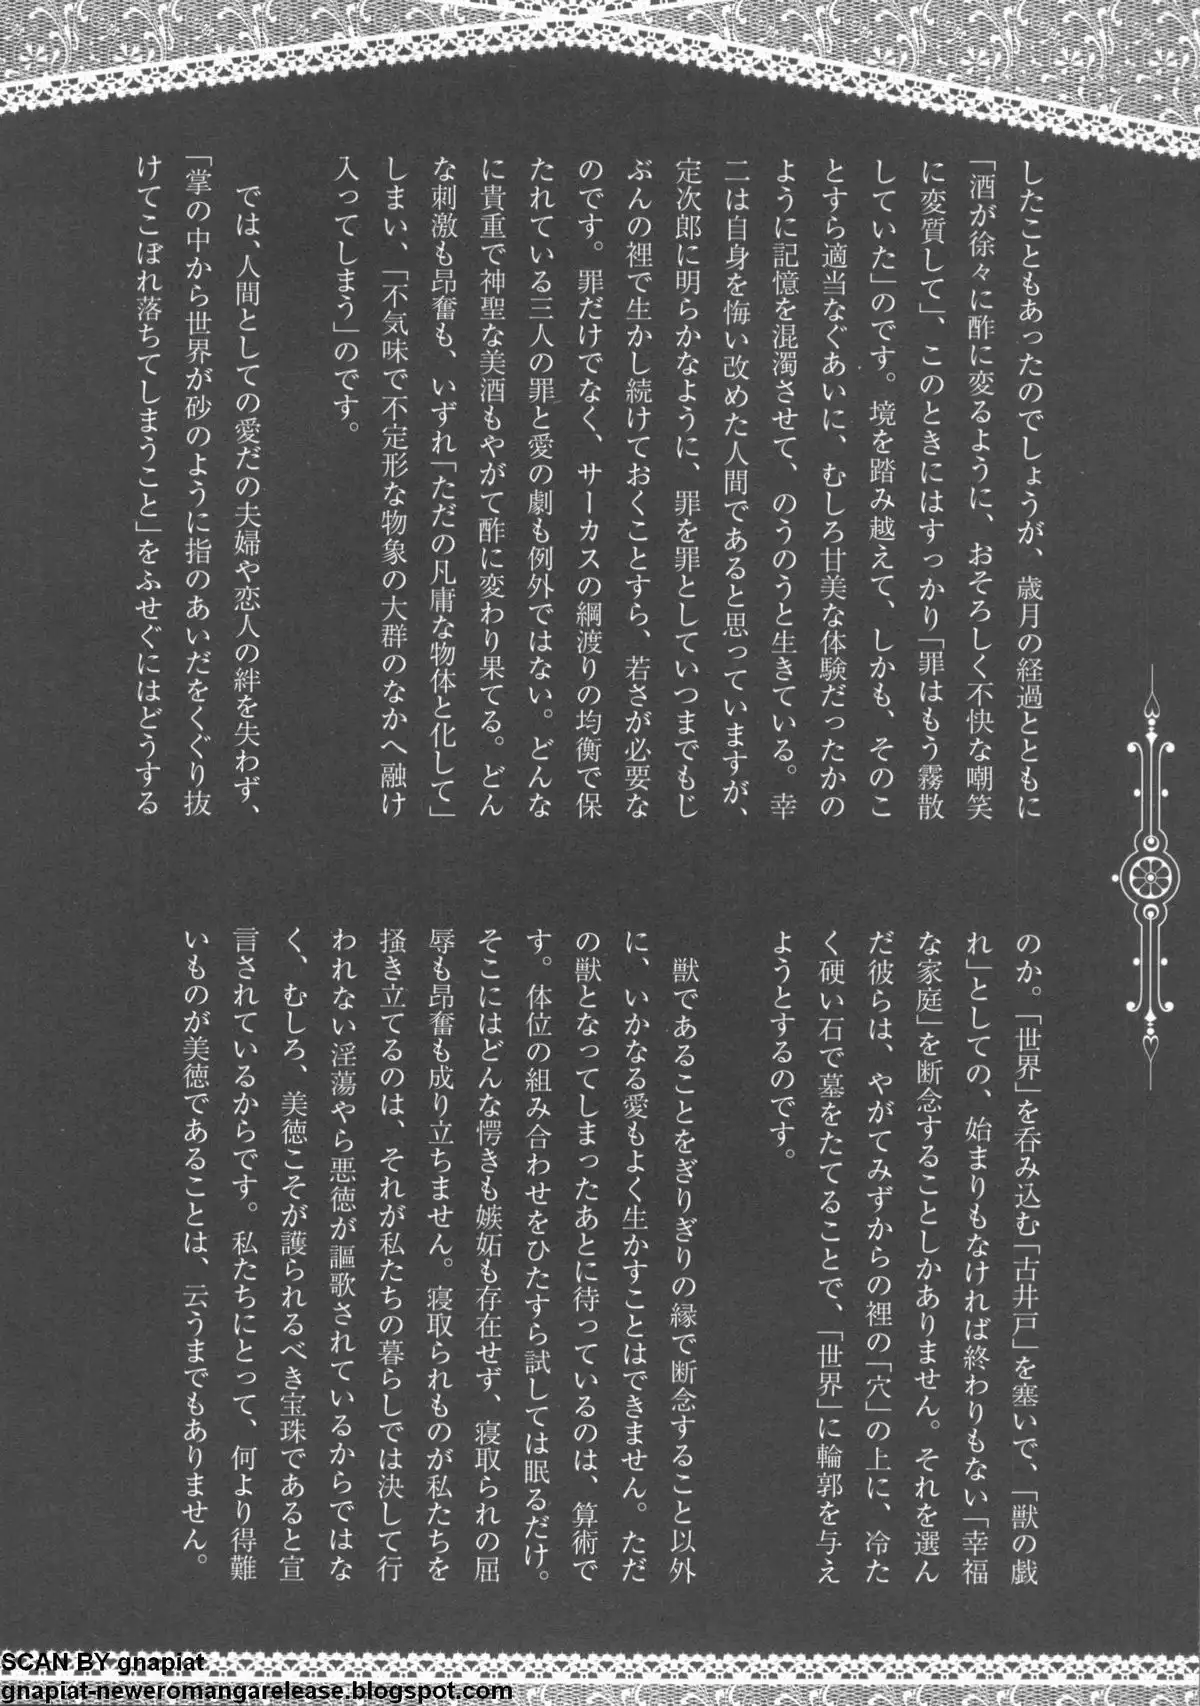 したこともあったのでしょうが、歳月の経過とともに
「酒が徐々に酢に変るように、おそろしく不快な嘲笑
に変質して」、このときにはすっかり「罪はもう霧散
していた」のです。境を踏み越えて、しかも、そのこ
とすら適当なぐあいに、むしろ甘美な体験だったかの
ように記憶を混濁させて、のうのうと生きている。幸
二は自身を悔い改めた人間であると思っていますが、
定次郎に明らかなように、罪を罪としていつまでもじ
ぶんの裡で生かし続けておくことすら、若さが必要な
のです。罪だけでなく、サーカスの綱渡りの均衡で保
たれている三人の罪と愛の劇も例外ではない。どんな
に貴重で神聖な美酒もやがて酢に変わり果てる。どん
な刺激も昂奮も、いずれ「ただの凡庸な物体と化して」
しまい、「不気味で不定形な物象の大群のなかへ融け
入ってしまう」のです。
では、人間としての愛だの夫婦や恋人の絆を失わず、
「掌の中から世界が砂のように指のあいだをくぐり抜
けてこぼれ落ちてしまうこと」をふせぐにはどうする
のか。「世界」を呑み込む「古井戸」を塞いで、「獣の戯
れ」としての、始まりもなければ終わりもない「幸福
な家庭」を断念することしかありません。それを選ん
だ彼らは、やがてみずからの裡の「穴」の上に、冷た
く硬い石で墓をたてることで、「世界」に輪郭を与え
ようとするのです。
獣であることをぎりぎりの縁で断念すること以外
に、いかなる愛もよく生かすことはできません。ただ
の獣となってしまったあとに待っているのは、算術で
す。体位の組み合わせをひたすら試しては眠るだけ。
そこにはどんな愕きも嫉妬も存在せず、寝取られの屈
辱も昂奮も成り立ちません。寝取られものが私たちを
掻き立てるのは、それが私たちの暮らしでは決して行
われない淫蕩やら悪徳が謳歌されているからではな
く、むしろ、美徳こそが護られるべき宝珠であると宣
言されているからです。私たちにとって、何より得難
いものが美徳であることは、云うまでもありません。
SCAN BY gnapiat
gnapiat-neweromangarelease.blogspot.com